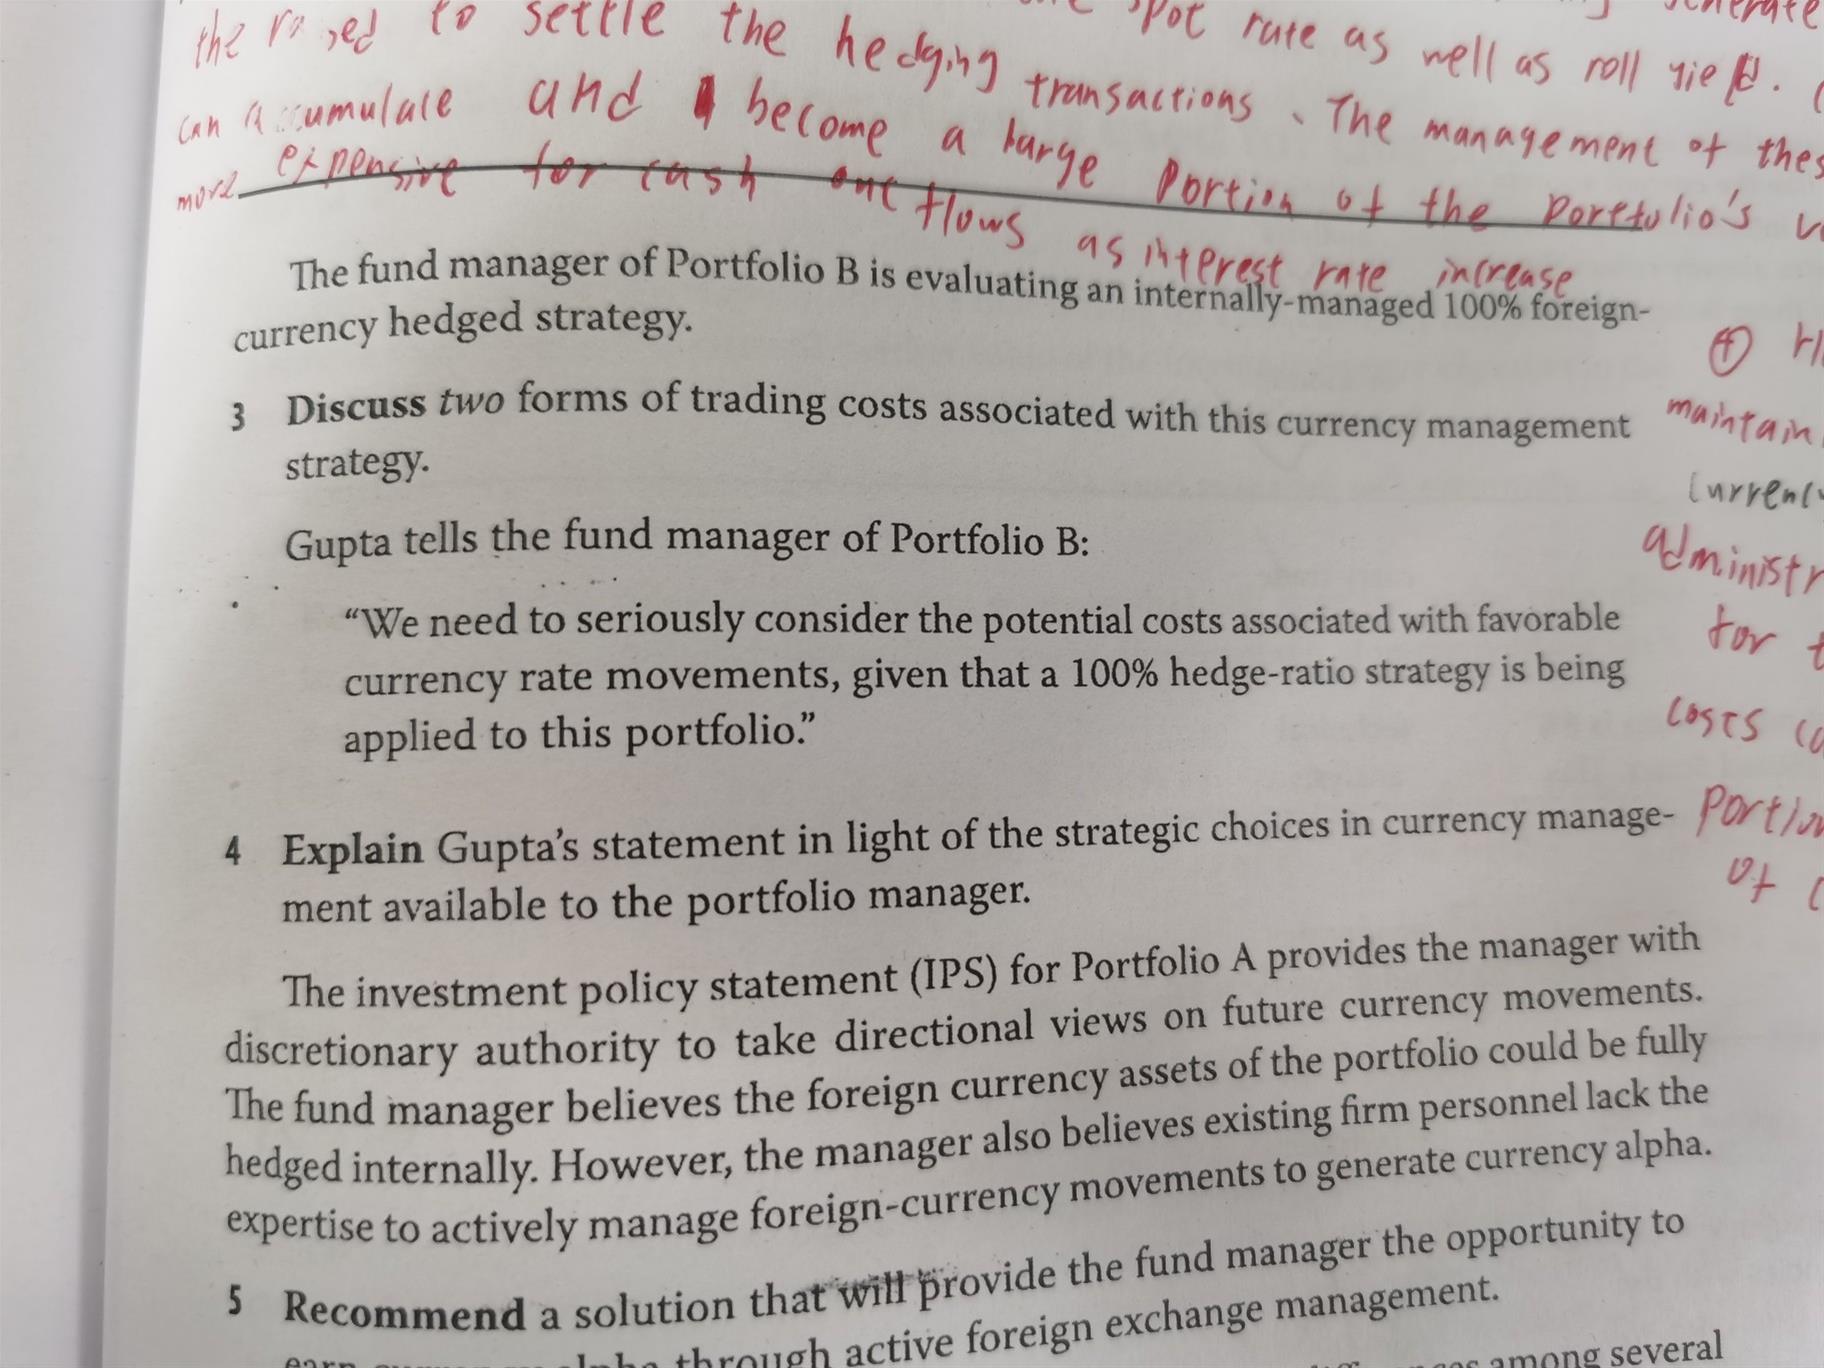 generate
the raised to settle the hedging spot rate as well as roll yield.
can accumulate and become a large transactions. The management of thes
more expensive for cash outflows portion of the portfolio's
as interest rate increase
The fund manager of Portfolio B is evaluating an internally-managed 100% foreign-
currency hedged strategy.
3 Discuss two forms of trading costs associated with this currency management
strategy.
Gupta tells the fund manager of Portfolio B:
“We need to seriously consider the potential costs associated with favorable
currency rate movements, given that a 100% hedge-ratio strategy is being
applied to this portfolio.”
4 Explain Gupta’s statement in light of the strategic choices in currency manage-
ment available to the portfolio manager.
The investment policy statement (IPS) for Portfolio A provides the manager with
discretionary authority to take directional views on future currency movements.
The fund manager believes the foreign currency assets of the portfolio could be fully
hedged internally. However, the manager also believes existing firm personnel lack the
expertise to actively manage foreign-currency movements to generate currency alpha.
5 Recommend a solution that will provide the fund manager the opportunity to
earn currency alpha through active foreign exchange management.
among several
④
maintain
currenc
administr
for t
costs
portion
of